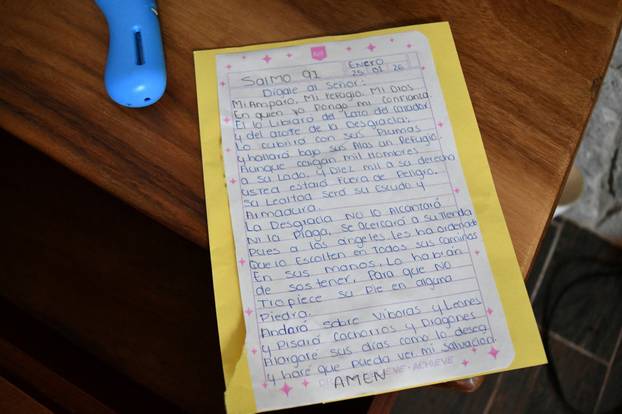 Salmo 91
Enero
25 01 26
Digale al Señor:
Mi Amparo, Mi refugio, Mi Dios
En quien yo pongo mi confianza.
El lo Librará del Lazo del cazador
y del azote de la Desgracia;
Lo cubrirá con sus Plumas
y hallará bajo sus Alas un Refugio
Aunque caigan mil Hombres
a su Lado, y Diez mil a su derecha
usted estará Fuera de Peligro.
su Lealtad será su Escudo y
Armadura.
La Desgracia No lo Alcanzará
Ni la Plaga, se Acercará a su Tienda
Pues a los ángeles les ha ordenado
Que lo Escolten en Todos sus caminos
En sus manos, Lo habran
de sostener, Para que No
Tropiece su Pie en alguna
Piedra.
Andará sobre Viboras y Leones
y Pisará Cachorros y Dragones
Alargare sus días como lo desea
y haré que pueda ver mi salvación.
ACHIEVE
AMEN